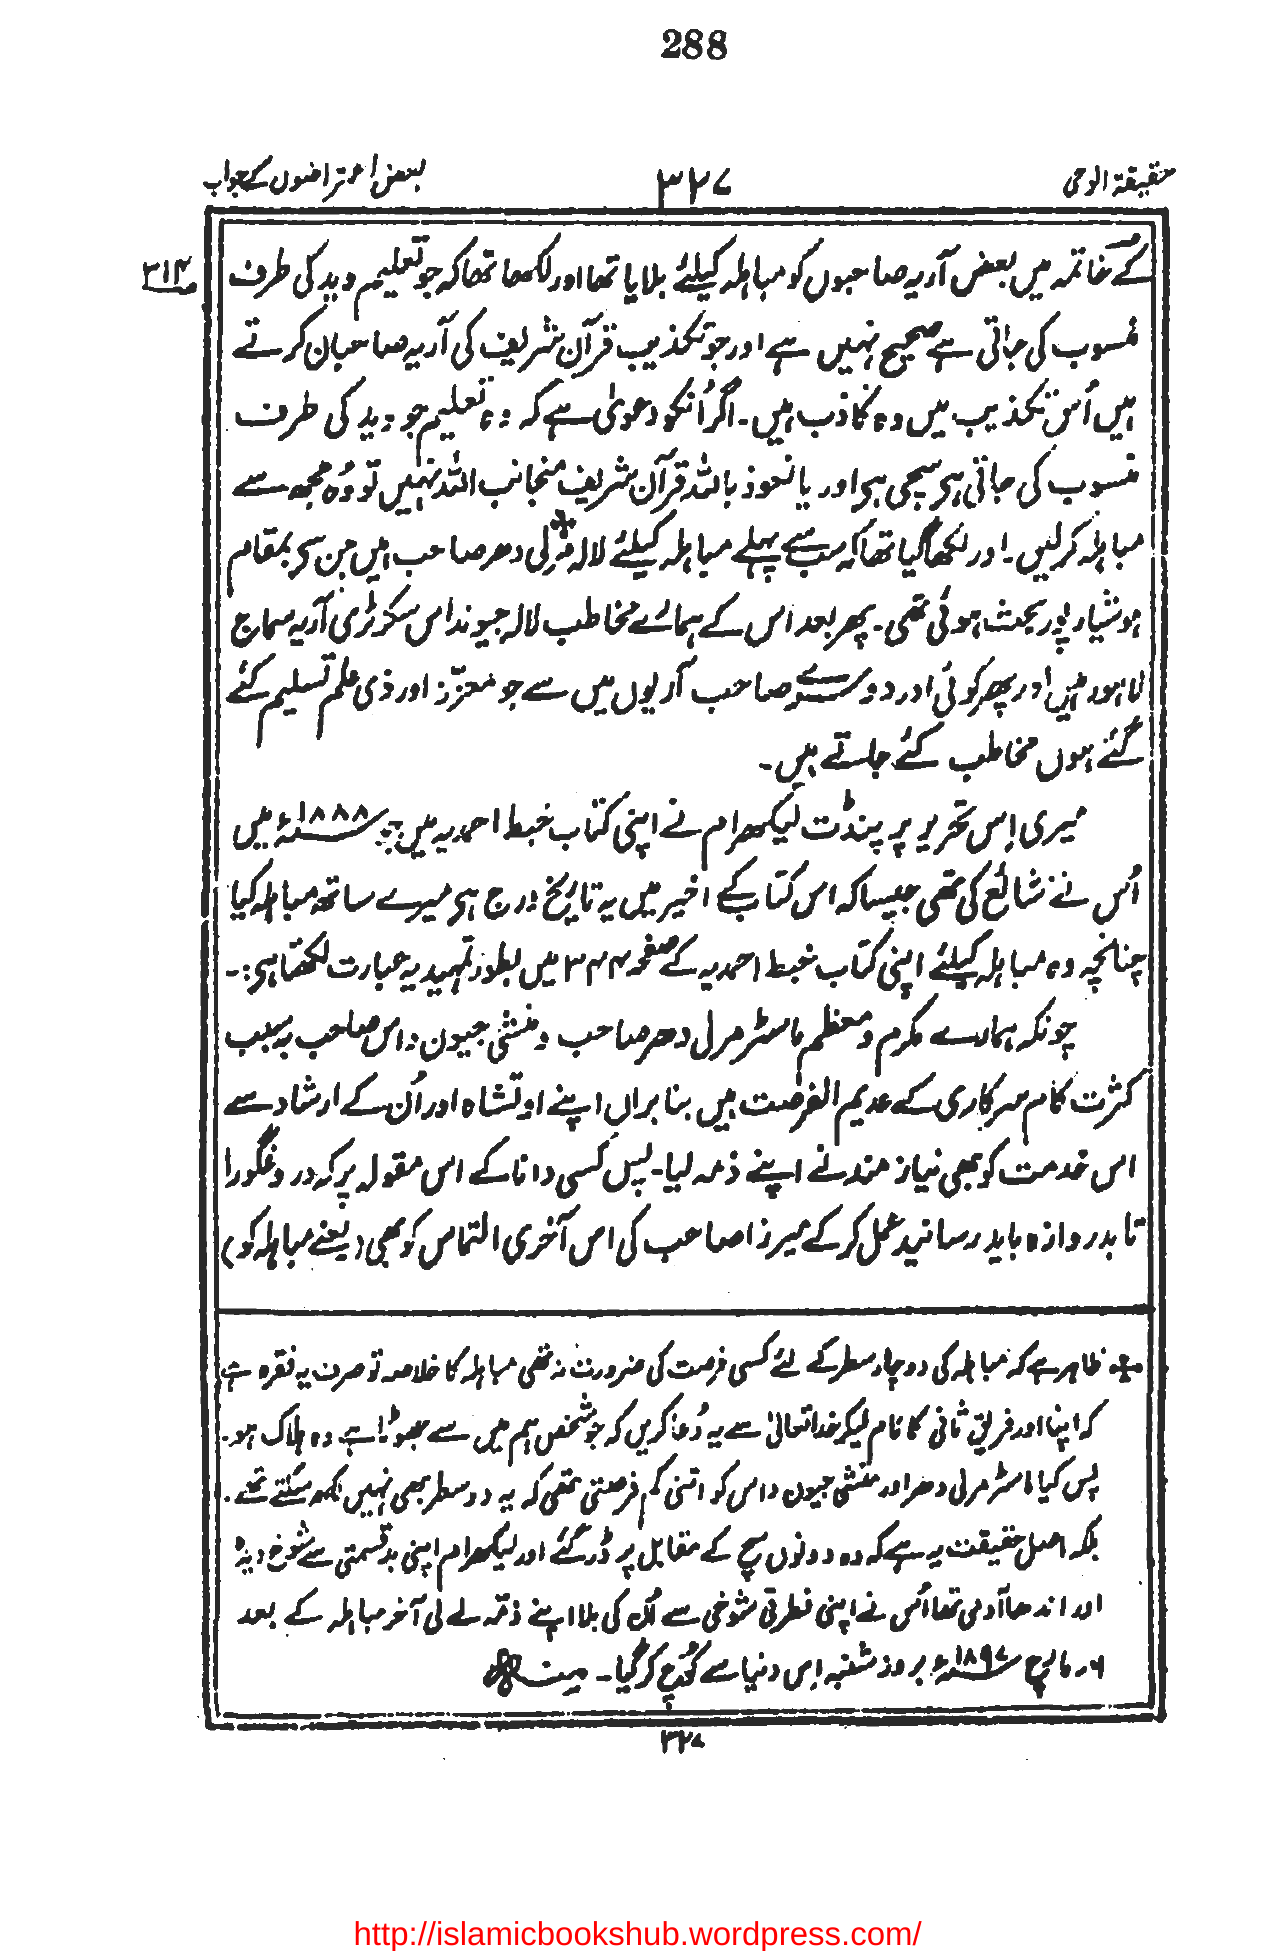 288
حقیقۃ الوحی
۳۲۷
بعض اعتراضوں کے جواب
۳۱۴
کے خاتمہ میں بعض آریہ صاحبوں کو مباہلہ کیلئے بلایا تھا اور لکھا تھا کہ جو تعلیم وید کی طرف
منسوب کی جاتی ہے صحیح نہیں ہے اور جو تکذیب قرآن شریف کی آریہ صاحبان کرتے
ہیں اُس تکذیب میں وہ کاذب ہیں۔ اگر اُنکو دعویٰ ہے کہ وہ تعلیم جو وید کی طرف
منسوب کی جاتی ہی سچی ہی اور یا نعوذ باللہ قرآن شریف منجانب اللہ نہیں تو وُہ مجھ سے
مباہلہ کرلیں۔ اور لکھا گیا تھا کہ سب سے پہلے مباہلہ کیلئے لالہ مُرلی دھر صاحب ہیں جن سی بمقام
ہوشیارپور بحث ہوئی تھی۔ پھر بعد اس کے ہمارے مخاطب لالہ جیونداس سکرٹری آریہ سماج
لاہور ہیں اور پھر کوئی اور دوسرے صاحب آریوں میں سے جو معزز اور ذی علم تسلیم کئے
گئے ہوں مخاطب کئے جاتے ہیں۔
میری اِس تحریر پر پنڈت لیکھرام نے اپنی کتاب خبط احمدیہ میں جو ۱۸۸۸ء میں
اُس نے شائع کی تھی جیسا کہ اس کتاب کے اخیر میں یہ تاریخ درج ہی میرے ساتھ مباہلہ کیا
چنانچہ وہ مباہلہ کیلئے اپنی کتاب خبط احمدیہ کے صفحہ ۳۴۴ میں بطور تمہید یہ عبارت لکھتا ہی:۔
چونکہ ہمارے مکرم و معظم ماسٹر مرلی دھر صاحب و منشی جیون داس صاحب بہ سبب
کثرت کام سرکاری کے عدیم الفرصت ہیں بنا براں اپنے اوتشاہ اور اُن کے ارشاد سے
اس خدمت کو بھی نیاز مند نے اپنے ذمہ لیا۔ پس کسی دانا کے اس مقولہ پر کہ دروغگو را
تا بدروازہ باید رسانید عمل کر کے میرزا صاحب کی اس آخری التماس کو بھی (یعنے مباہلہ کو)
* ظاہر ہے کہ مباہلہ کی دو چار سطر کے لئے کسی فرصت کی ضرورت نہ تھی مباہلہ کا خلاصہ تو صرف یہ فقرہ ہے
کہ اپنا اور فریق ثانی کا نام لیکر خدا تعالیٰ سے یہ دُعا کریں کہ جو شخص ہم میں سے جھوٹا ہے وہ ہلاک ہو۔
پس کیا ماسٹر مرلی دھر اور منشی جیون داس کو اتنی کم فرصتی تھی کہ یہ دو سطر بھی نہیں لکھ سکتے تھے۔
بلکہ اصل حقیقت یہ ہے کہ وہ دونوں سچ کے مقابل پر ڈر گئے اور لیکھرام اپنی بدقسمتی سے شوخ دیدہ
اور اندھا آدمی تھا اُس نے اپنی فطرتی شوخی سے اُن کی بلا اپنے ذمہ لے لی آخر مباہلہ کے بعد
۶؍ مارچ ۱۸۹۷ء بروز شنبہ اِس دنیا سے کُوچ کر گیا۔ منہ
۳۲۷
http://islamicbookshub.wordpress.com/